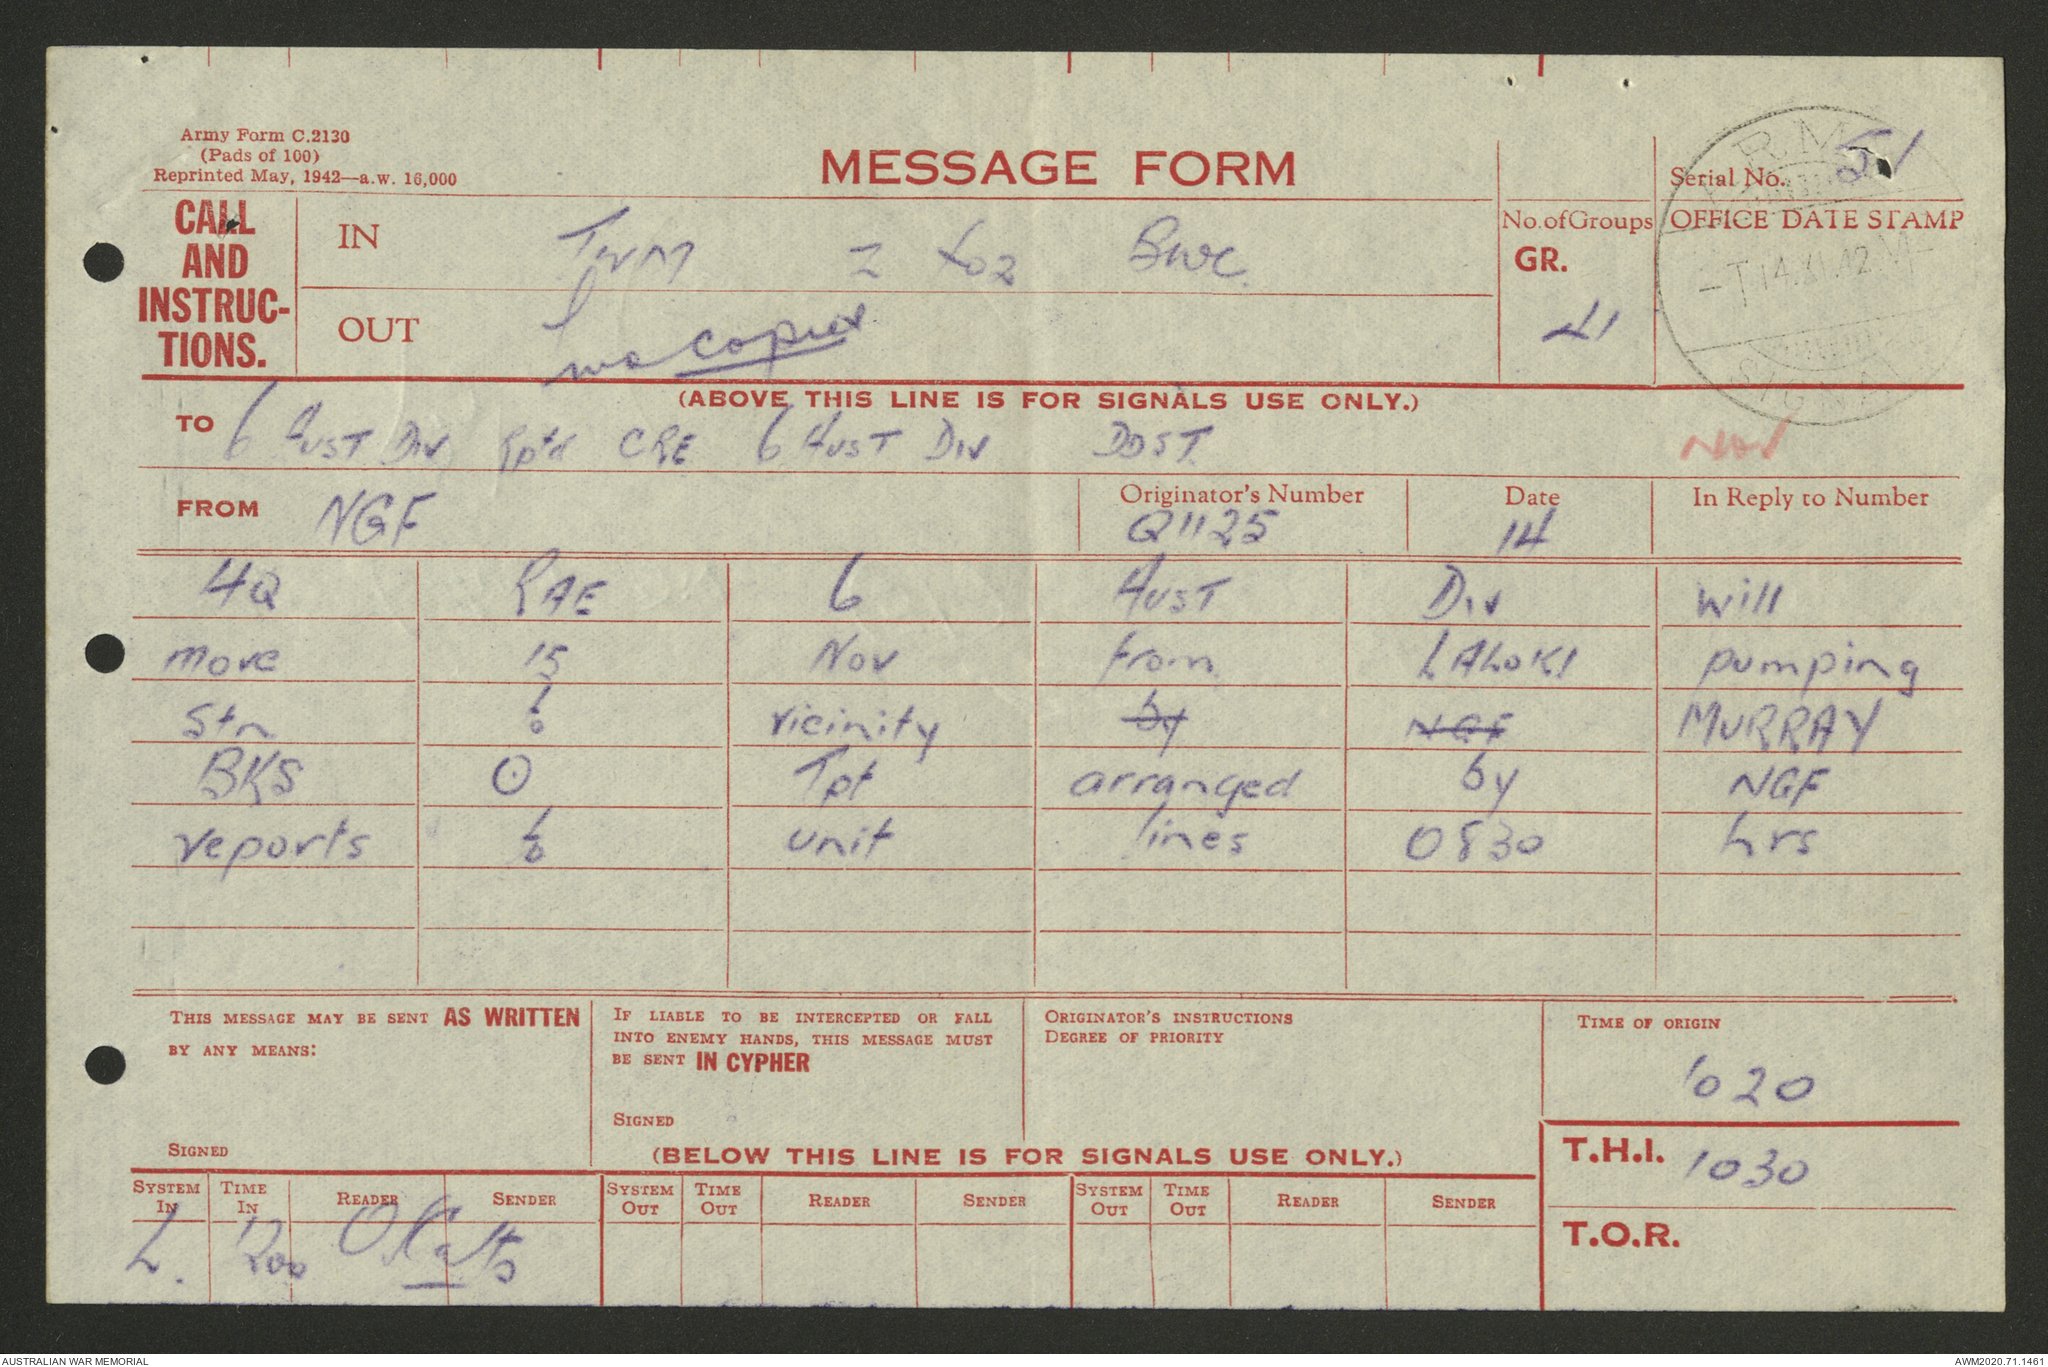 Army Form C.2130
(Pads of 100)
Reprinted May, 1942—a.w. 16,000
MESSAGE FORM
Serial No. 51
CALL AND INSTRUC-TIONS.
IN TWM Z X02 BWC
OUT no copies
No. of Groups
GR.
41
OFFICE DATE STAMP
ARMY SIGNALS
(ABOVE THIS LINE IS FOR SIGNALS USE ONLY.)
TO 6 AUST DIV Rptd CRE 6 AUST DIV DDST
Nov
FROM NGF
Originator's Number
Q1125
Date
14
In Reply to Number
HQ RAE 6 AUST DIV will
move 15 Nov from LALOKI pumping
Stn to vicinity by NGF MURRAY
BKS ⊙ Tpt arranged by NGF
reports to unit lines 0830 hrs
THIS MESSAGE MAY BE SENT AS WRITTEN
BY ANY MEANS:
SIGNED
IF LIABLE TO BE INTERCEPTED OR FALL
INTO ENEMY HANDS, THIS MESSAGE MUST
BE SENT IN CYPHER
SIGNED
ORIGINATOR'S INSTRUCTIONS
DEGREE OF PRIORITY
TIME OF ORIGIN
1020
(BELOW THIS LINE IS FOR SIGNALS USE ONLY.)
T.H.I. 1030
T.O.R.
SYSTEM IN TIME IN READER SENDER SYSTEM OUT TIME OUT READER SENDER SYSTEM OUT TIME OUT READER SENDER
L. 1200
AUSTRALIAN WAR MEMORIAL
AWM2020.71.1461